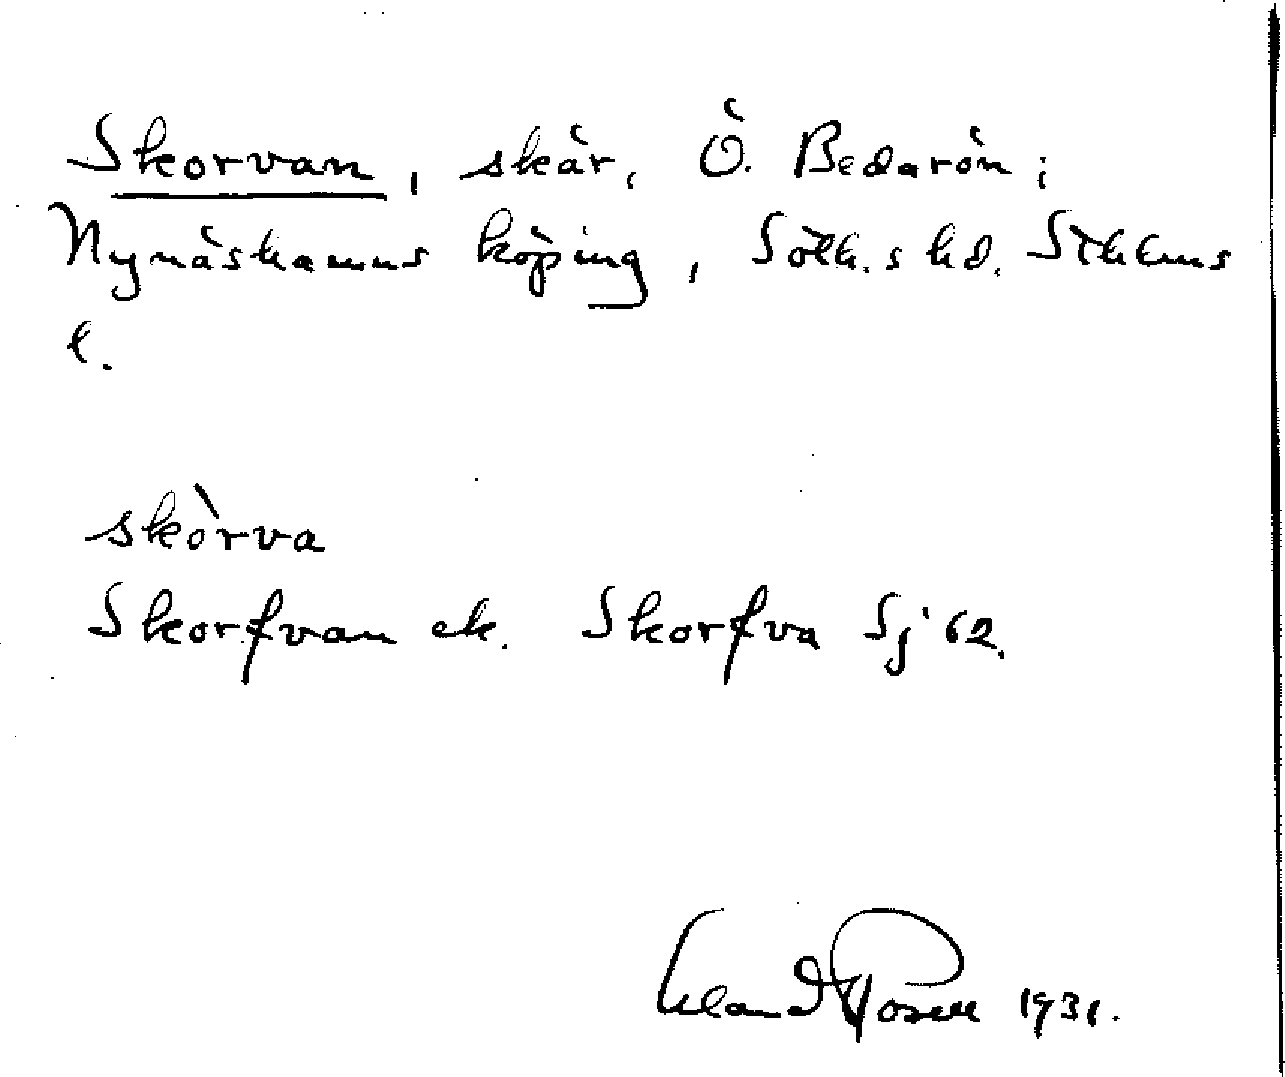 Skorvan, skär, Ö. Bedarön;
Nynäshamns köping, Söth.s hd. Sthlms
l.
skòrva
Skorfvan ek. Skorfva Sj 62.
Erland Rosell 1931.